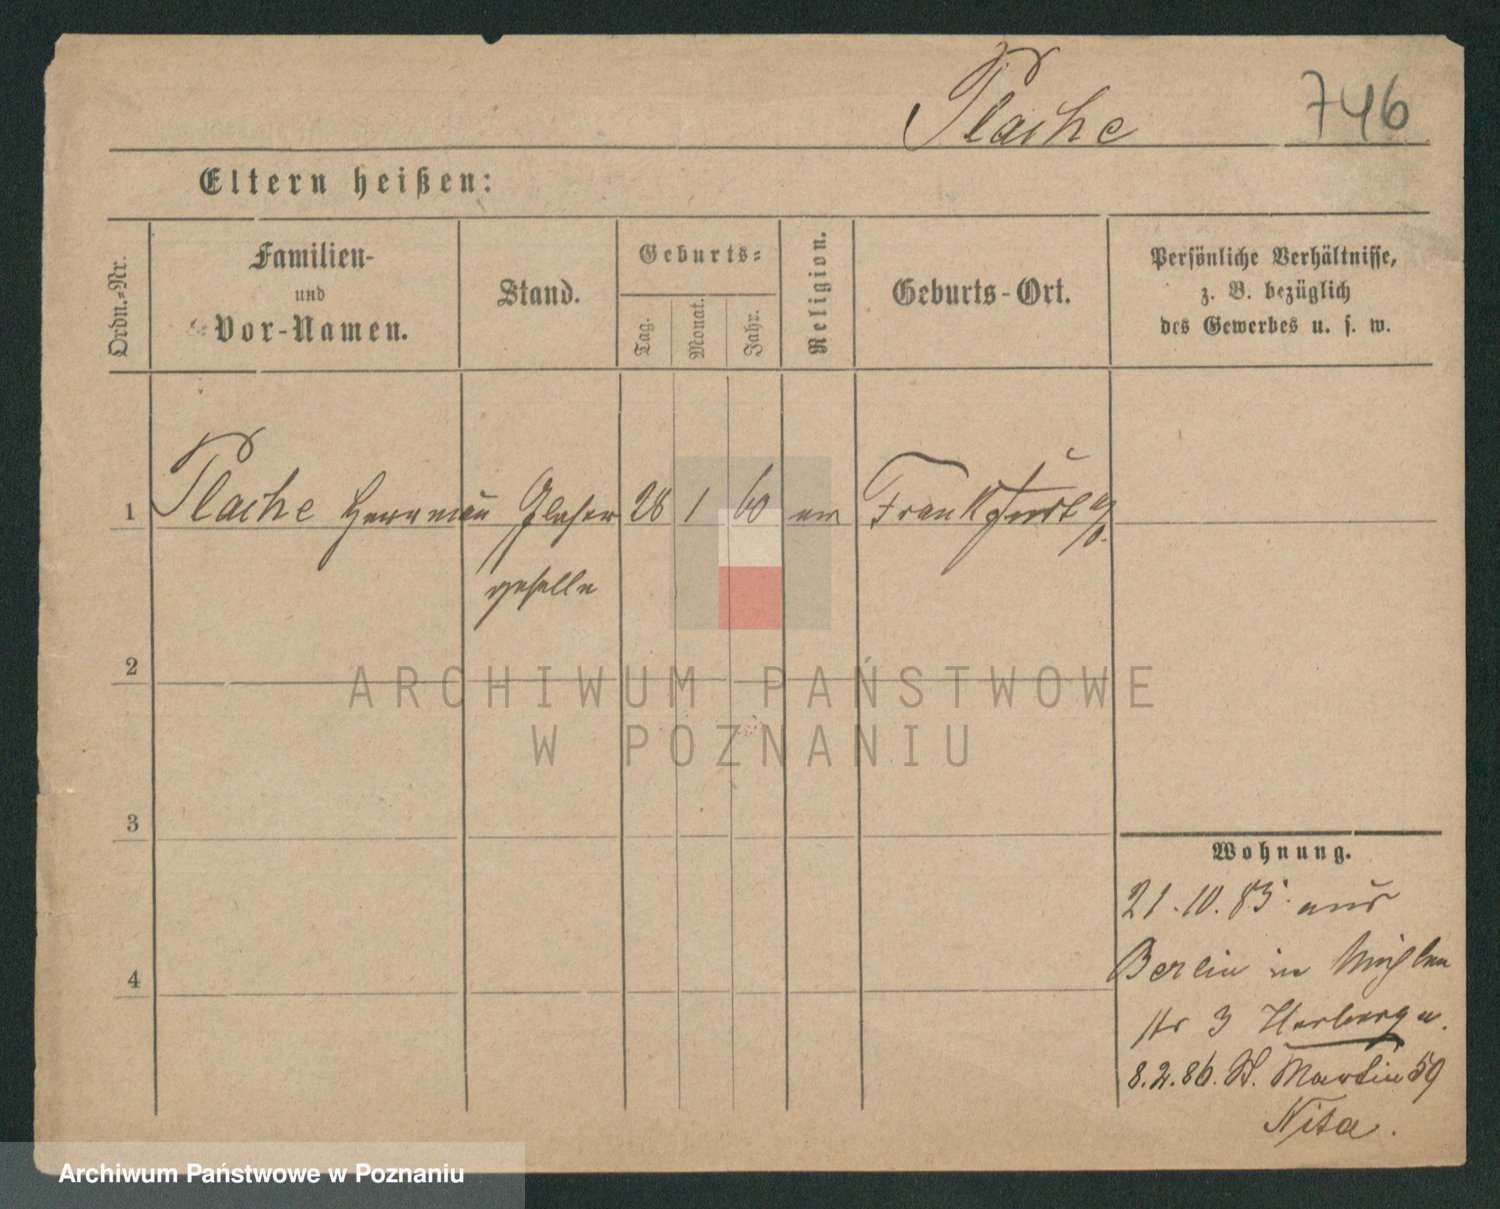 Plache
746
Eltern heißen:
Ordn.-Nr.
Familien-
und
Vor-Namen.
Stand.
Geburts-
Tag.
Monat.
Jahr.
Religion.
Geburts-Ort.
Persönliche Verhältnisse,
z. B. bezüglich
des Gewerbes u. s. w.
1 Plache Herrman Glaser 28 1 60 ev Frankfurt a/
geselle
O.
2
3
4
Wohnung.
21.10.85 aus
Berlin in Mühlen
str 3 Herberge.
8.2.86. St. Martin 59
Nita.
ARCHIWUM PAŃSTWOWE
W POZNANIU
Archiwum Państwowe w Poznaniu